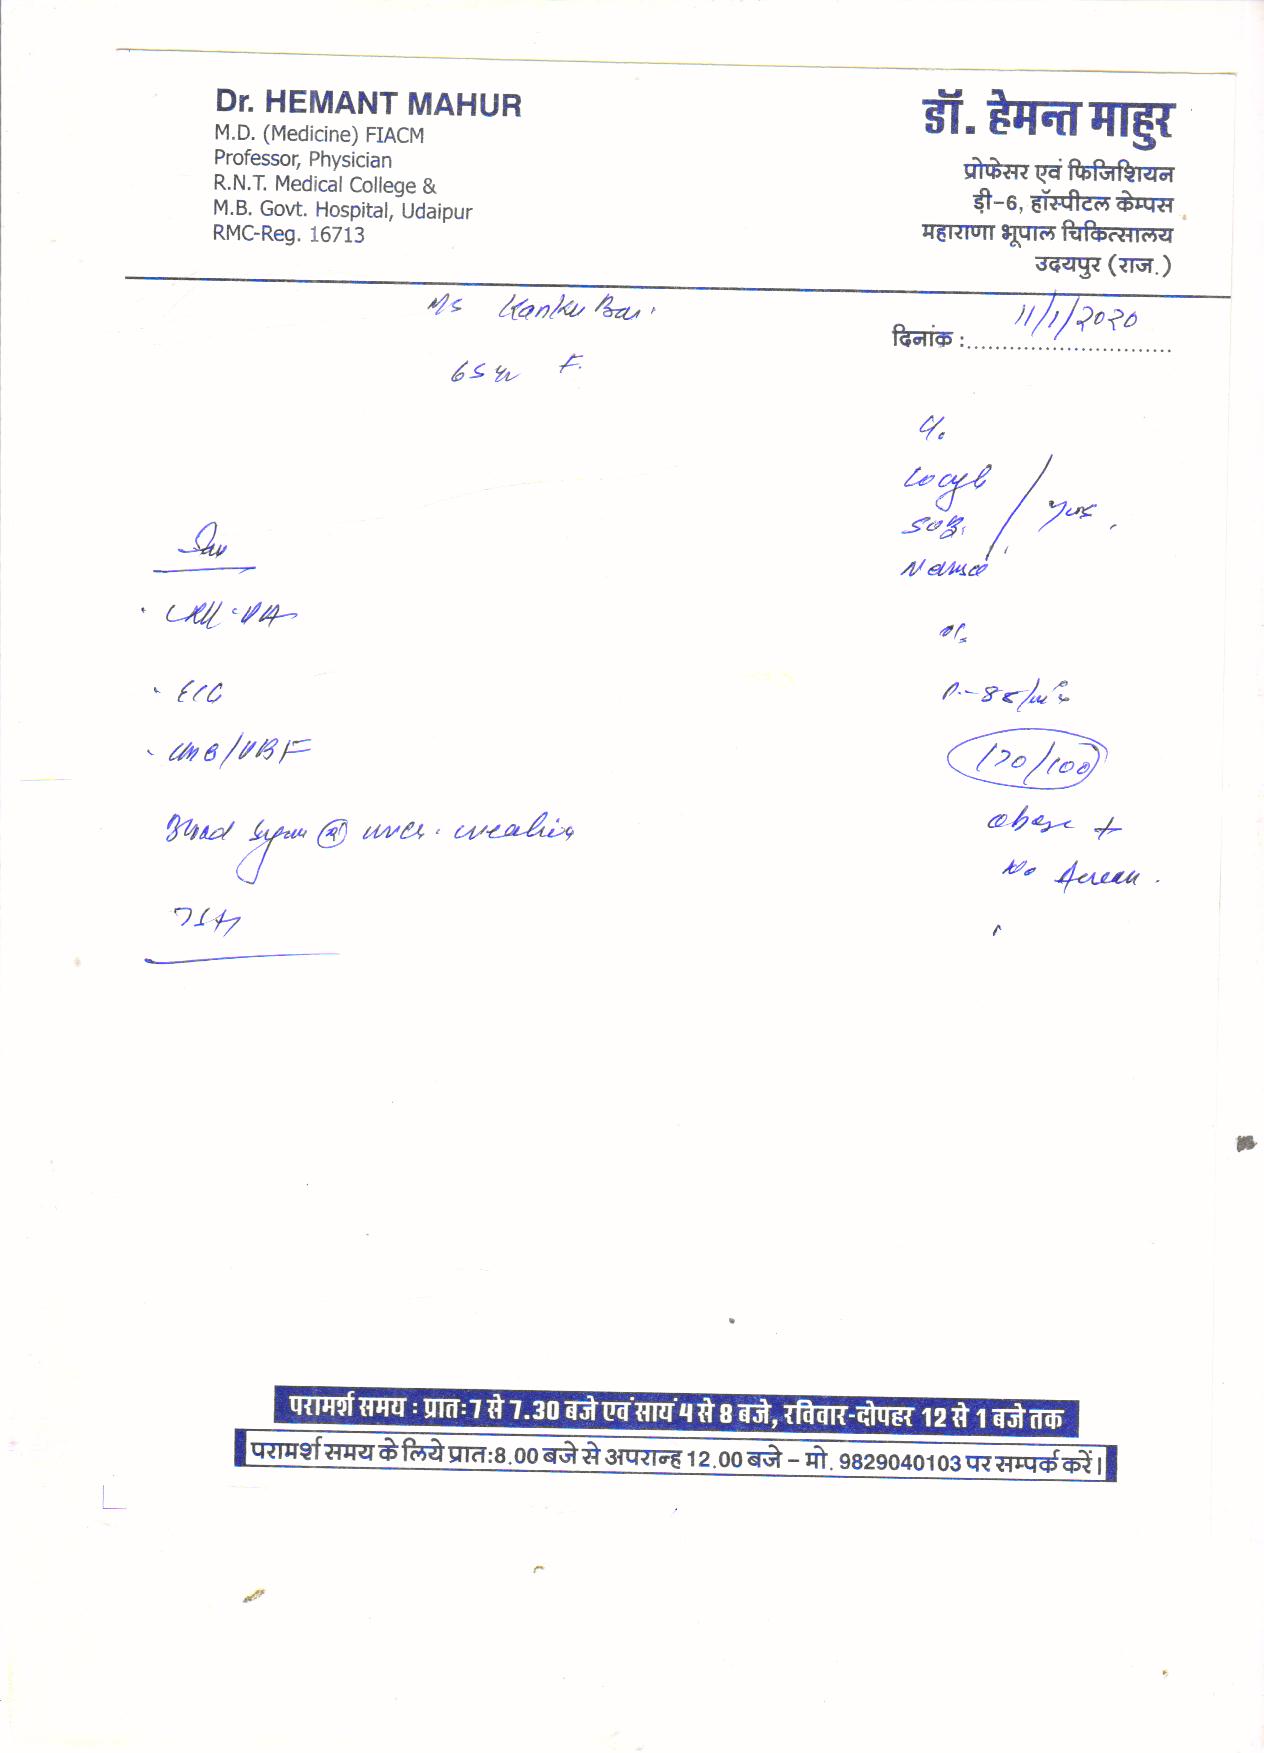 Dr. HEMANT MAHUR
M.D. (Medicine) FIACM
Professor, Physician
R.N.T. Medical College &
M.B. Govt. Hospital, Udaipur
RMC-Reg. 16713
डॉ. हेमन्त माहुर
प्रोफेसर एवं फिजिशियन
ड़ी-6, हॉस्पीटल केम्पस
महाराणा भूपाल चिकित्सालय
उदयपुर (राज.)
Ms Kanku Bai
दिनांक : 11/1/2020
65 yr F.
SOB.
P.-88/m
170/100
obese +
No
ECG
Blood @ urea. creatinine
TSH
परामर्श समय : प्रातः 7 से 7.30 बजे एवं सायं 4 से 8 बजे, रविवार-दोपहर 12 से 1 बजे तक
परामर्श समय के लिये प्रात:8.00 बजे से अपरान्ह 12.00 बजे – मो. 9829040103 पर सम्पर्क करें।